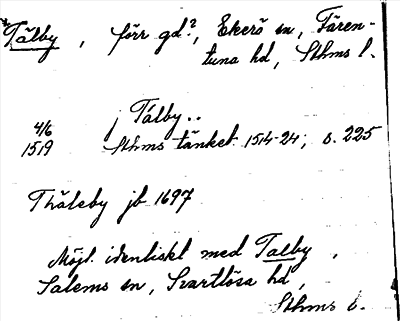 *Tälby, förr gd?, Ekerö sn, Fären-
tuna hd, Sthms l.
j Tälby..
4/6
1519 Sthms tänkeb. 1514-24; s. 225
Thäleby jb 1697
Möjl. identiskt med Talby,
Salems sn, Svartlösa hd,
Sthms l.